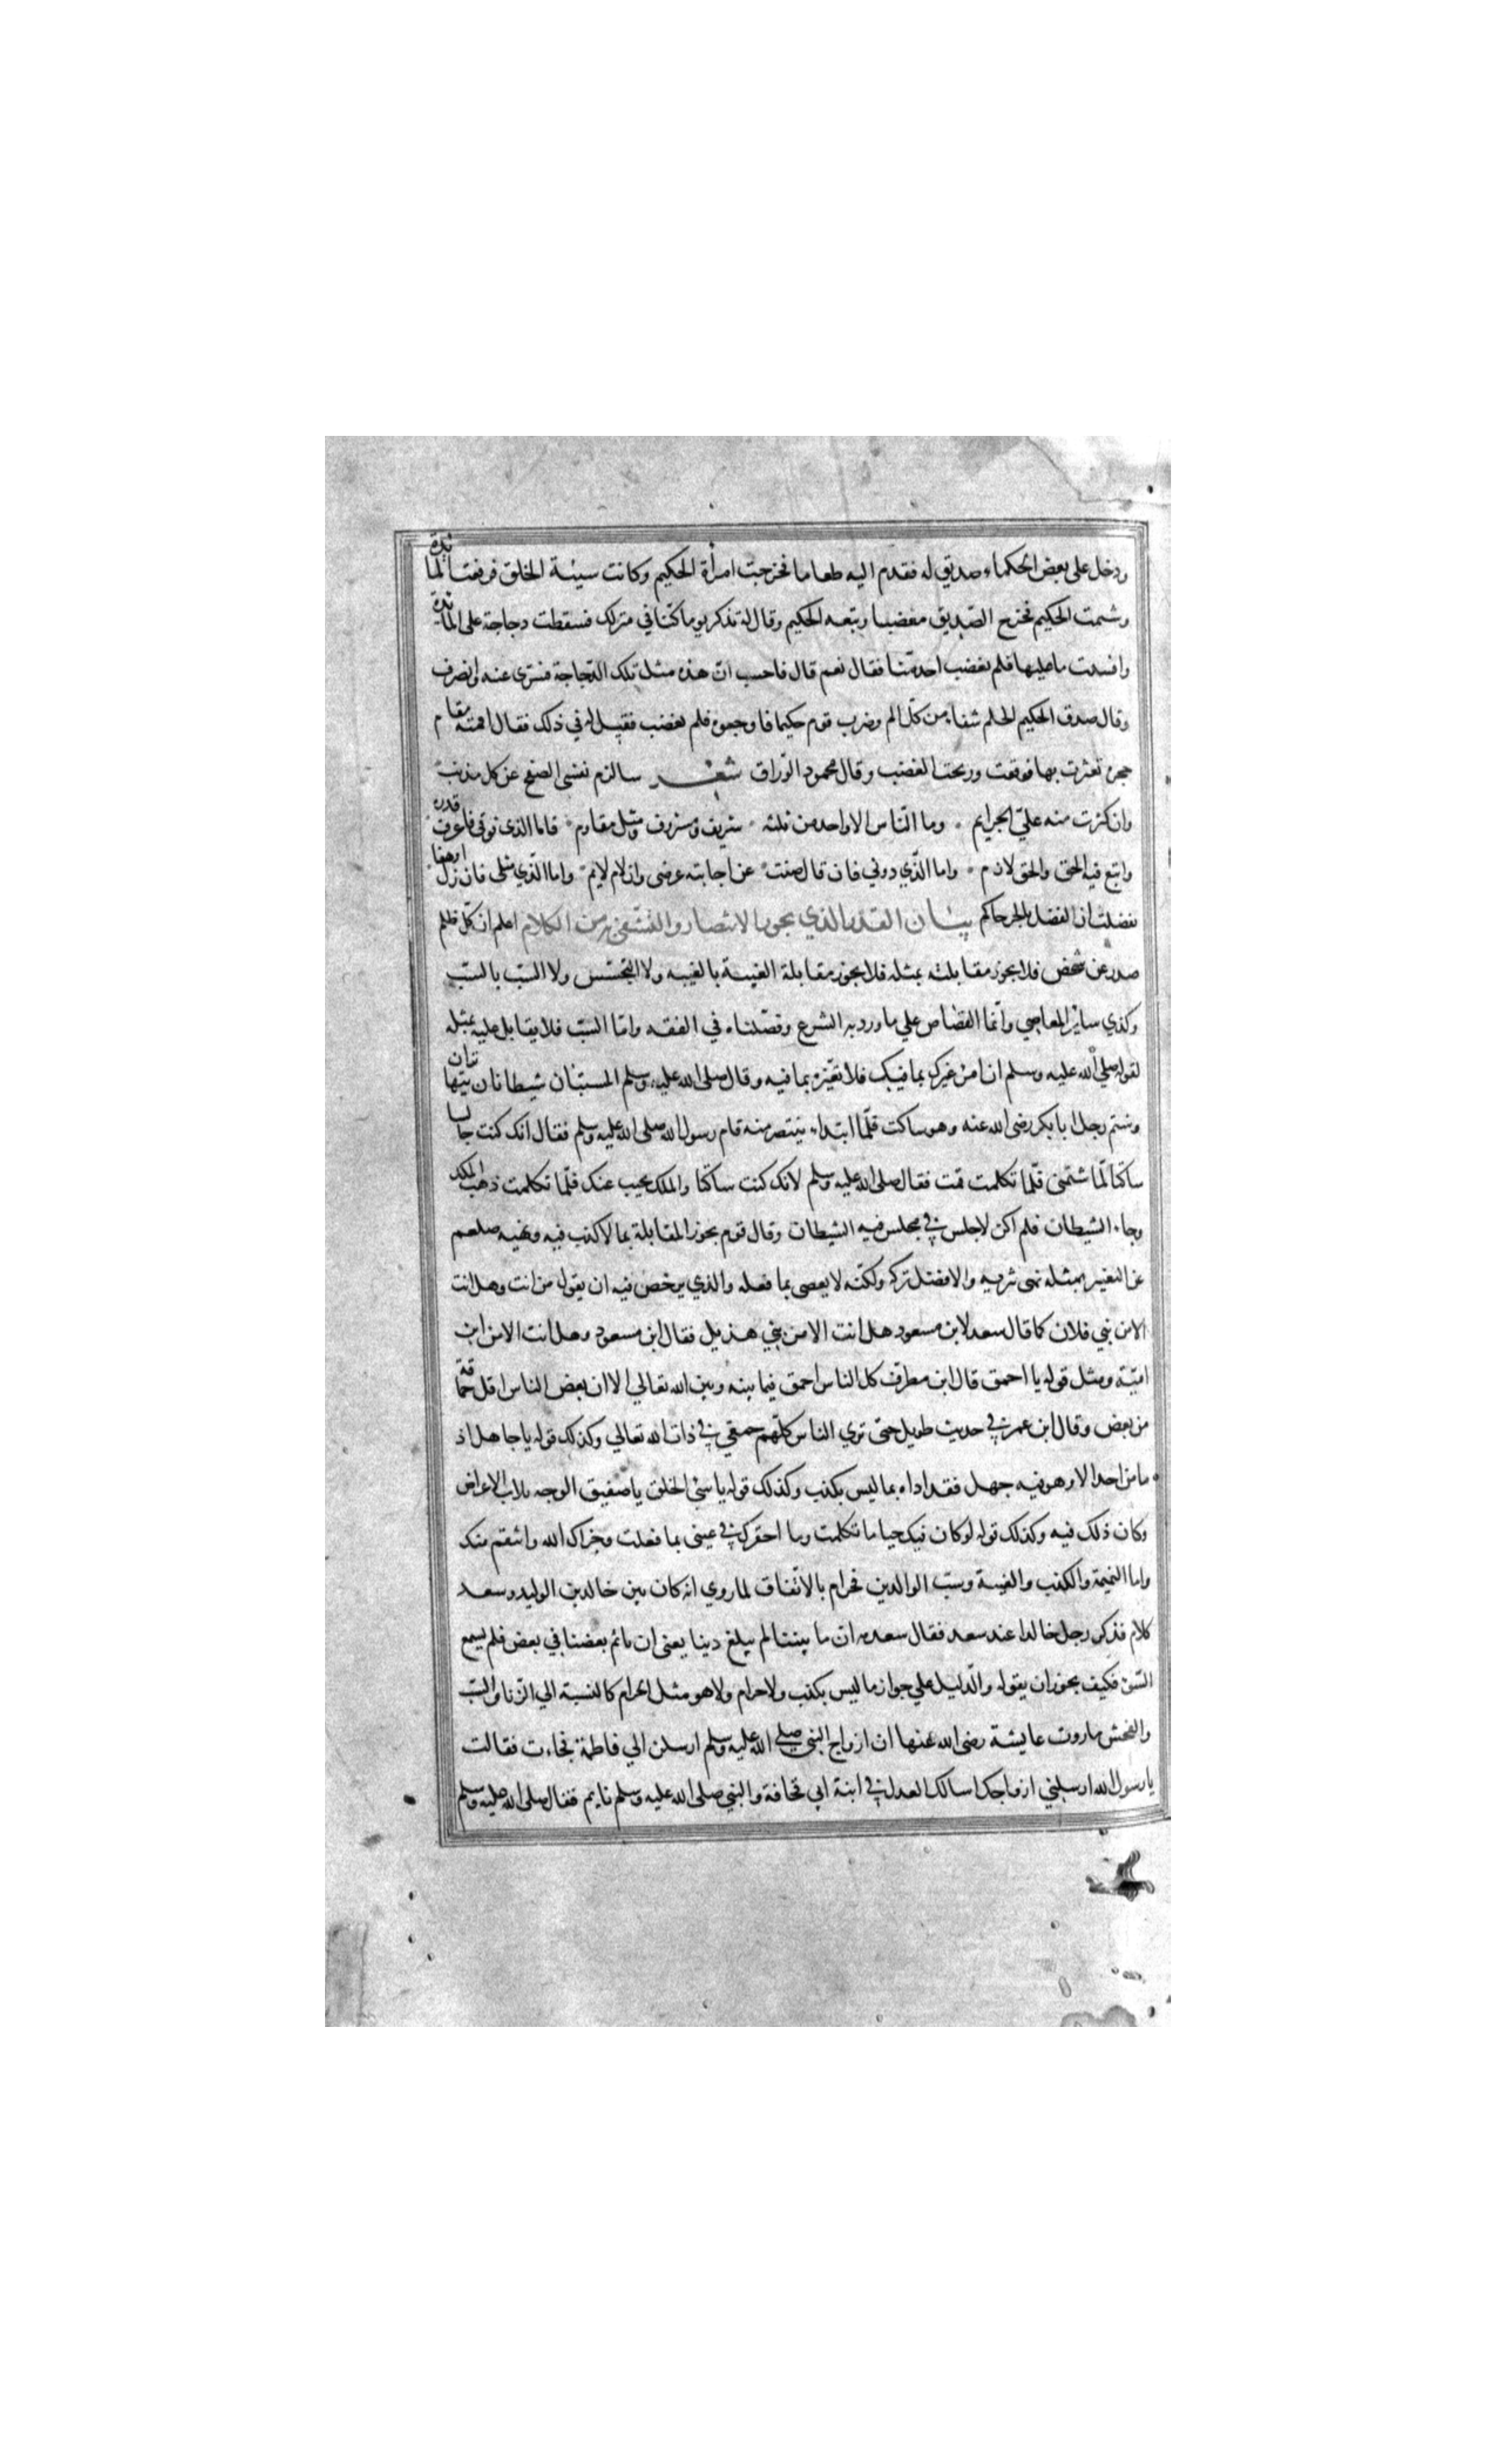 ودخل على بعض الحكماء صديق له فقدم اليه طعاما فخرجت امرأة الحكيم وكانت سيئة الخلق فرفعت المائدة
وشتمت الحكيم فخرج الصديق مغضبا وتبعه الحكيم وقال له تذكر يوما كنا في منزلك فسقطت دجاجة على المائدة
وافسدت ما عليها فلم يغضب احد منا فقال نعم قال فاحسب ان هذه مثل تلك الدجاجة فسرى عنه وانصرف
وقال صدق الحكيم الحلم شفاء من كل الم وضرب قوم حكيما فاوجعوه فلم يغضب فقيل له في ذلك فقال اقمته مقام
حجر تعثرت بها فوقعت وربحت الغضب وقال محمود الوراق شعر سالزم نفسي الصفح عن كل مذنب
وان كثرت منه علي الجرايم وما الناس الا واحد من ثلثة شريف ومشروف ومثل مقاوم فاما الذي فوقي فاعرف قدره
واتبع فيه الحق والحق لازم واما الذي دوني فان قال صنت عن اجابته عرضي وان لام لايم واما الذي مثلي فان زل او هفا
تفضلت ان الفضل بالحر حاكم بيان القدر الذي يجوز الانتصار والتشفي به من الكلام اعلم ان كل ظلم
صدر عن شخص فلا يجوز مقابلته بمثله فلا يجوز مقابلة الغيبة بالغيبه ولا التجسس ولا السب بالسب
وكذي ساير المعاصي وانما القصاص علي ما ورد به الشرع وفصلناه في الفقه واما السب فلا يقابل عليه بمثله
لقوله صلي الله عليه وسلم ان امرء عيرك بما فيك فلا تعيره بما فيه وقال صلى الله عليه وسلم المستبان شيطانان يتهاتران
وشتم رجل ابا بكر رضى الله عنه وهو ساكت فلما ابتداء ينتصر منه قام رسول الله صلى الله عليه وسلم فقال انك كنت جالسا
ساكتا لما شتمنى فلما تكلمت قمت فقال صلى الله عليه وسلم لانك كنت ساكتا والملك يجيب عنك فلما تكلمت ذهب الملك
وجاء الشيطان فلم اكن لاجلس في مجلس فيه الشيطان وقال قوم يجوز المقابلة بما لا كذب فيه ونهيه صلعم
عن التعيير بمثله نهى تنزيه والافضل تركه ولكنه لا يعصى بما فعله والذي يرخص فيه ان يقول من انت وهل انت
الا من بني فلان كما قال سعد لابن مسعود هل انت الا من بني هذيل فقال ابن مسعود وهل انت الا من ابن
امية ومثل قوله يا احمق قال ابن مطرف كل الناس احمق فيما بينه وبين الله تعالي الا ان بعض الناس اقل حماقة
من بعض وقال ابن عمر في حديث طويل حتى تري الناس كلهم حمقي في ذات الله تعالي وكذلك قوله يا جاهل اذ
ما من احد الا وهو فيه جهل فقد اداه بما ليس بكذب وكذلك قوله يا سئ الخلق يا صفيق الوجه يلاب الاعراض
وكان ذلك فيه وكذلك قوله لو كان فيك حيا ما تكلمت وما احقرك في عينى بما فعلت وجزاك الله وانتقم منك
واما النميمة والكذب والغيبة وسب الوالدين فحرام بالاتفاق لما روي انه كان بين خالد بن الوليد وسعد
كلام فذكر رجل خالدا عند سعد فقال سعد مه ان ما بيننا لم يبلغ دينا يعنى ان ياثم بعضنا في بعض فلم يسمع
السوء فكيف يجوز ان يقوله والدليل علي جواز ما ليس بكذب ولا حرام ولا هو مثل الحرام كالنسبة الي الزنا والسب
والفحش ما روت عايشة رضى الله عنها ان ازواج النبي صلى الله عليه وسلم ارسلن الي فاطمة فجاءت فقالت
يا رسول الله ارسلني ازواجك اسالك العدل في ابنة ابي قحافة والنبي صلى الله عليه وسلم نايم فقال صلى الله عليه وسلم